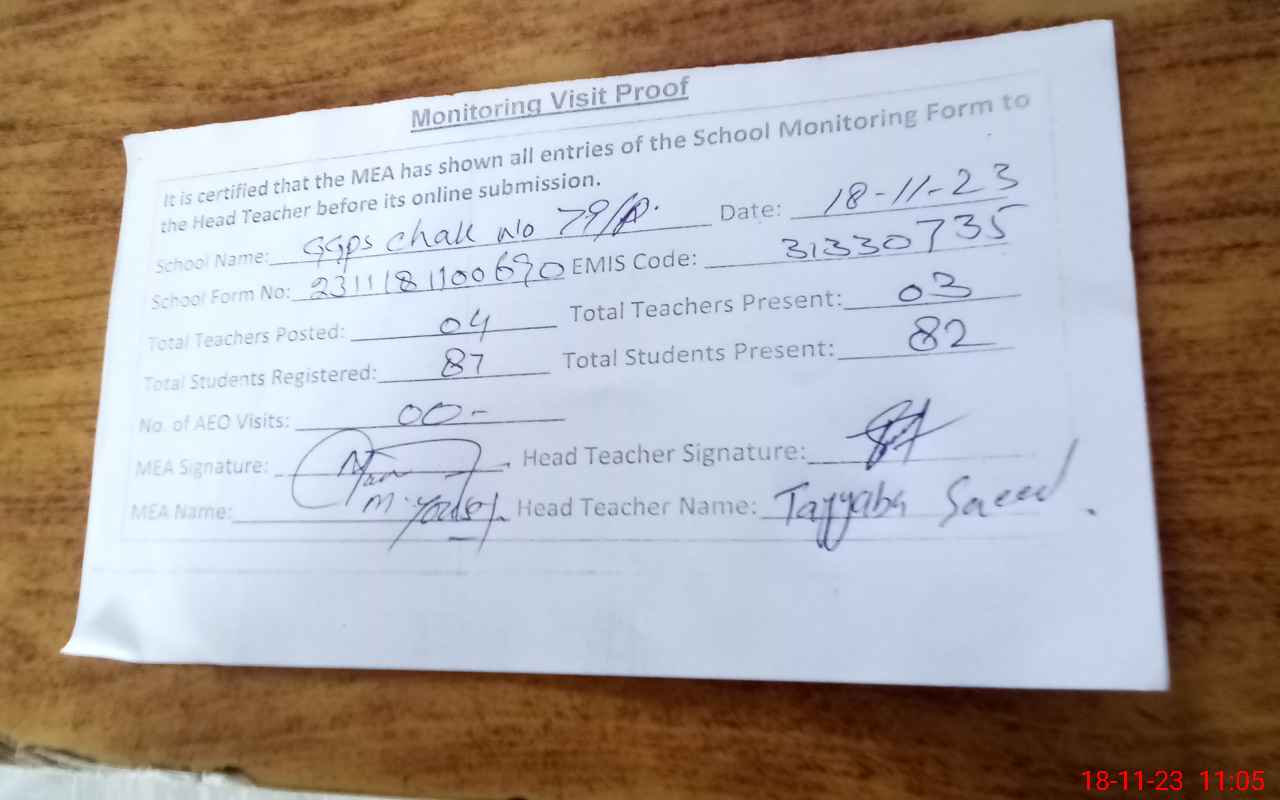 Monitoring Visit Proof
It is certified that the MEA has shown all entries of the School Monitoring Form to
the Head Teacher before its online submission.
School Name: GGPS chak no 79/P. Date: 18-11-23
School Form No: 2311181100690 EMIS Code: 31330735
Total Teachers Posted: 04 Total Teachers Present: 03
Total Students Registered: 87 Total Students Present: 82
No. of AEO Visits: 00-
MEA Signature: Head Teacher Signature:
MEA Name: M. Yousaf Head Teacher Name: Tayyaba Saeed.
18-11-23 11:05